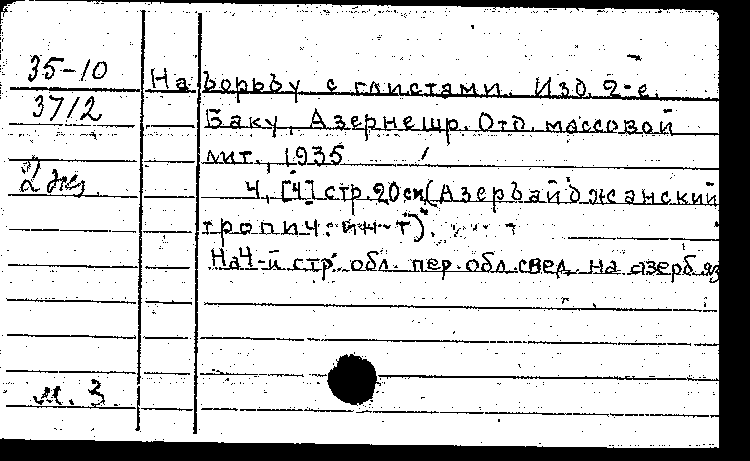 35-10
На борьбу с глистами. Изд. 2-е.
37/2
Баку, Азернешр. Отд. массовой
лит., 1935
2 экз
4, [4] стр. 20 см (Азербайджанский
тропич. ин-т).
На 4-й стр. обл. пер. обл. свед. на азерб яз
м. 3